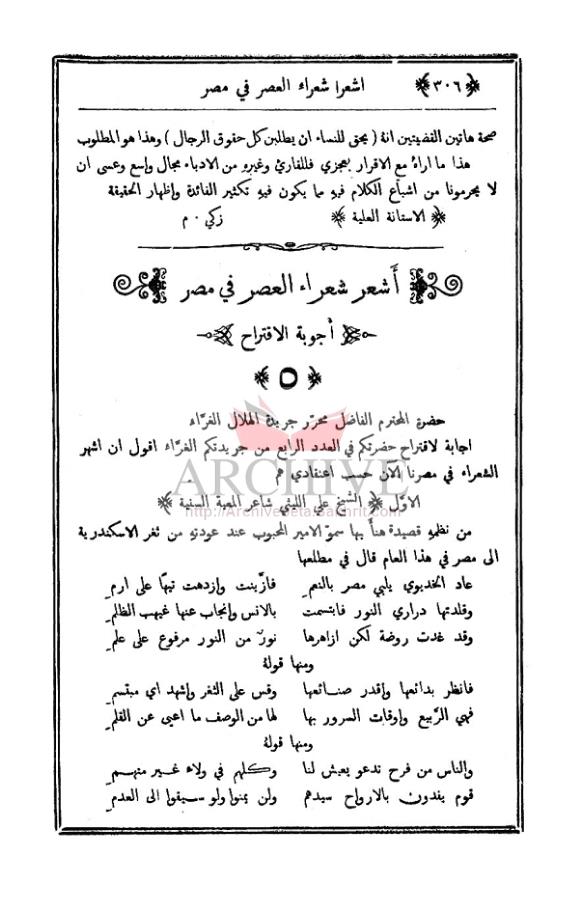 ﴿٣٠٦﴾ اشعرا شعراء العصر في مصر
صحة هاتين القضيتين انهُ ( يحق للنساء ان يطلبن كل حقوق الرجال ) وهذا هو المطلوب
هذا ما اراهُ مع الاقرار بعجزي فللقارئ وغيره من الادباء مجال واسع وعسى ان
لا يحرمونا من اشباع الكلام فيه مما يكون فيه تكثير الفائدة وإظهار الحقيقة
﴿ الاستانة العلية ﴾ زكي ٠ م
أَشعر شعراء العصر في مصر
أجوبة الاقتراح
﴿ ٥ ﴾
حضرة المحترم الفاضل محرّر جريدة الهلال الغرَّاء
اجابة لاقتراح حضرتكم في العدد الرابع من جريدتكم الغرَّاء اقول ان اشهر
الشعراء في مصرنا الآن حسب اعتقادي هم
ARCHIVE
الاوَّل ﴿ الشيخ علي الليثي شاعر المعية السنية ﴾
من نظمهِ قصيدة هنأَ بها سموّ الامير المحبوب عند عودتهِ من ثغر الاسكندرية
الى مصر في هذا العام قال في مطلعها
عاد الخديوي يلبي مصر بالنعمِ فازَّينت وإزدهت تيهًا على ارمِ
وقلدتها دراري النور فابتسمت بالانس وإنجاب عنها غيهب الظلمِ
وقد غدت روضة لكن ازاهرها نورٌ من النور مرفوع على علمِ
ومنها قولهُ
فانظر بدائعها وإقدر صنائعها وقس على الثغر وإشهد اي مبتسمِ
فهي الرَّبيع وإوقات السرور بها لها من الوصف ما اعيى عن القلمِ
ومنها قولهُ
والناس من فرح تدعو يعيش لنا وكلهم في ولاء غير متهمِ
قوم يفدون بالارواح سيدهم ولن يمنوا ولو سيقوا الى العدمِ